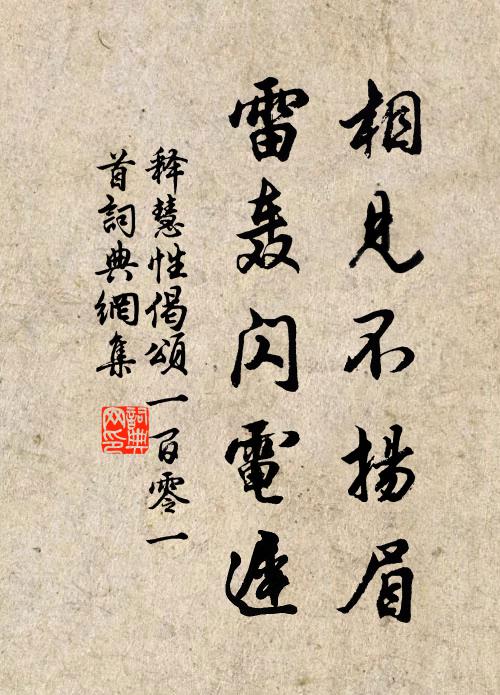 相見不揚眉
雷轰闪電遲
释慧性偈頌一百零一
首詞典網集
詞典网印